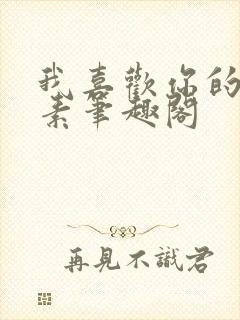 我喜歡你的
素筆趣閣
再見不識君